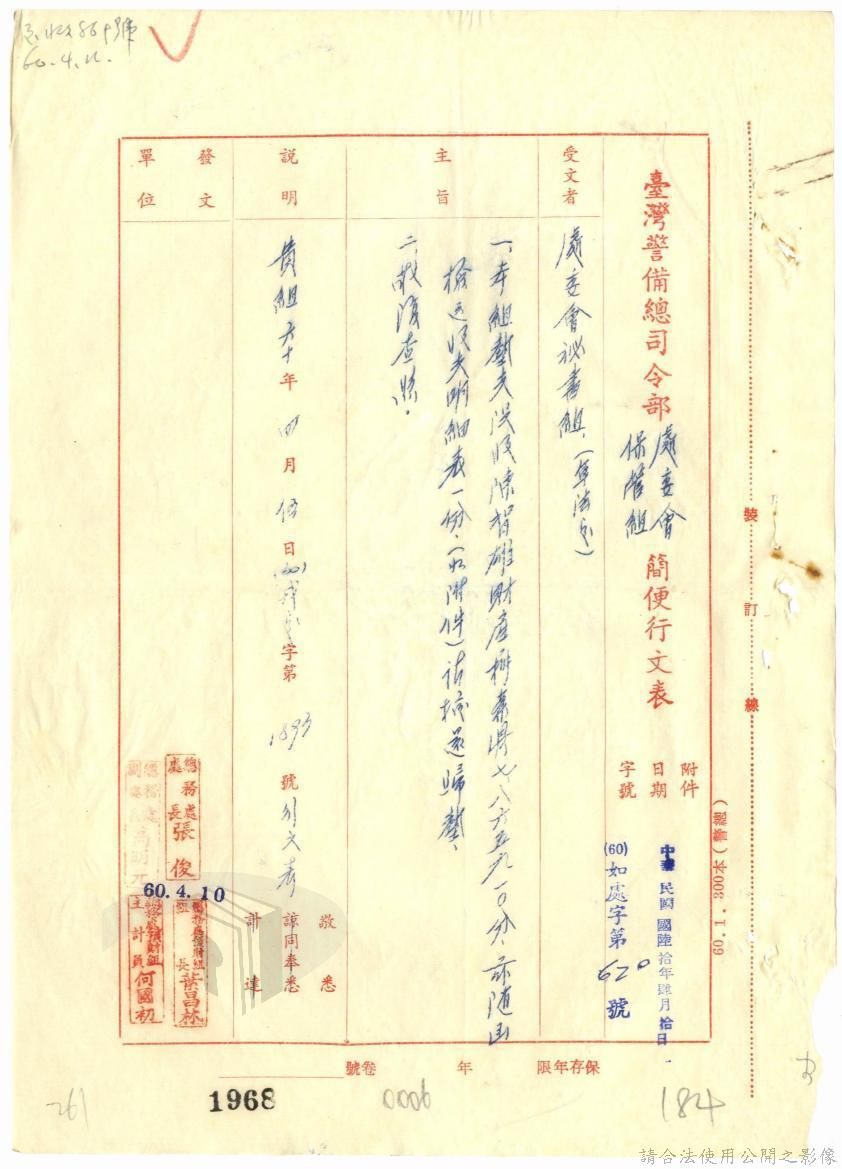 60.4.12.
臺灣警備總司令部
處委會
保管組
簡便行文表
附件
日期 中華民國陸拾年肆月拾日
字號 (60)如處字第620號
受文者
處委會秘書組、(軍法處)
主旨
一、本組墊支沒收陳智雄財產
檢送收支明細表一份、(如附件)請核還歸墊、
二、敬復查照。
說明
貴組六十年四月伍日
字第1893號
敬悉
諒同奉悉
計達
發文
單位
總務處
處長張俊
60.4.10
組長葉昌林
主計員何國初
裝訂線
60.1.300本(警總)
保存年限
年
卷號
1968
0006
184
261
請合法使用公開之影像